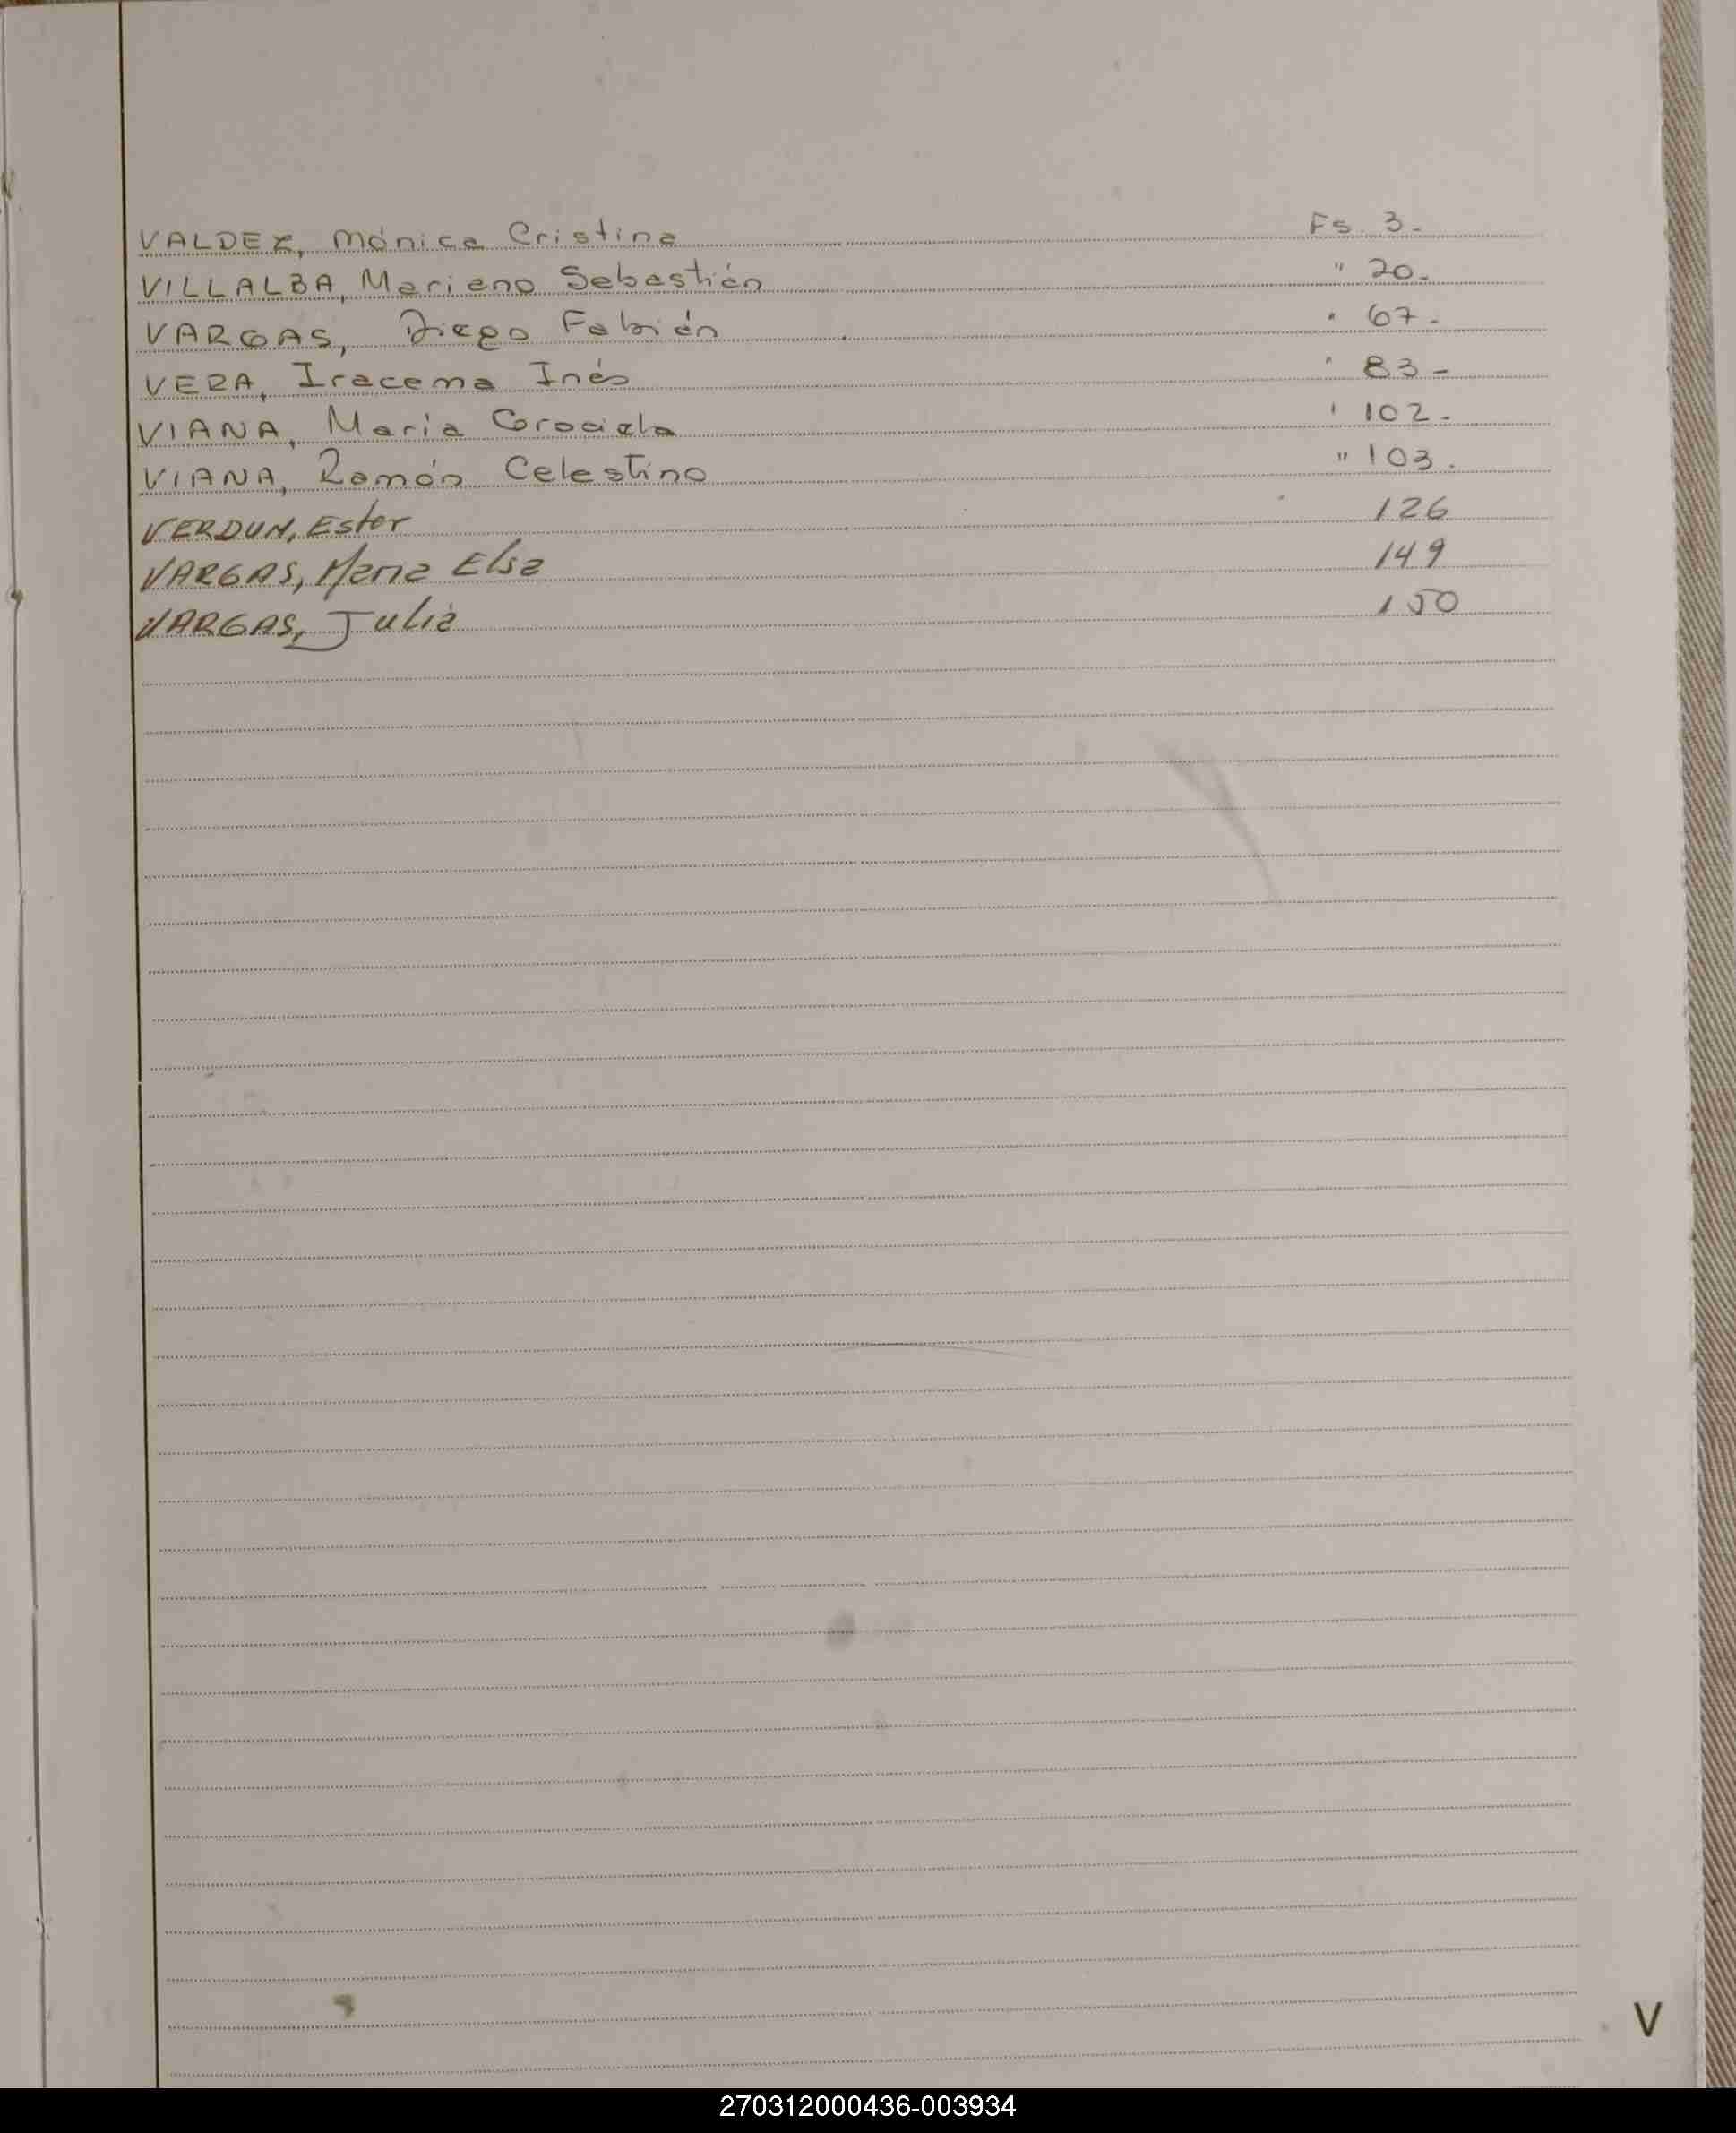 VALDEZ, Mónica Cristina Fs. 3.-
VILLALBA, Mariano Sebastián " 20.-
VARGAS, Diego Fabián " 67.-
VERA, Iracema Inés " 83-
VIANA, María " 102.-
VIANA, Ramón Celestino " 103.
VERDUN, Ester 126
VARGAS, Maria Elsa 149
VARGAS, Julia 150
V
270312000436-003934